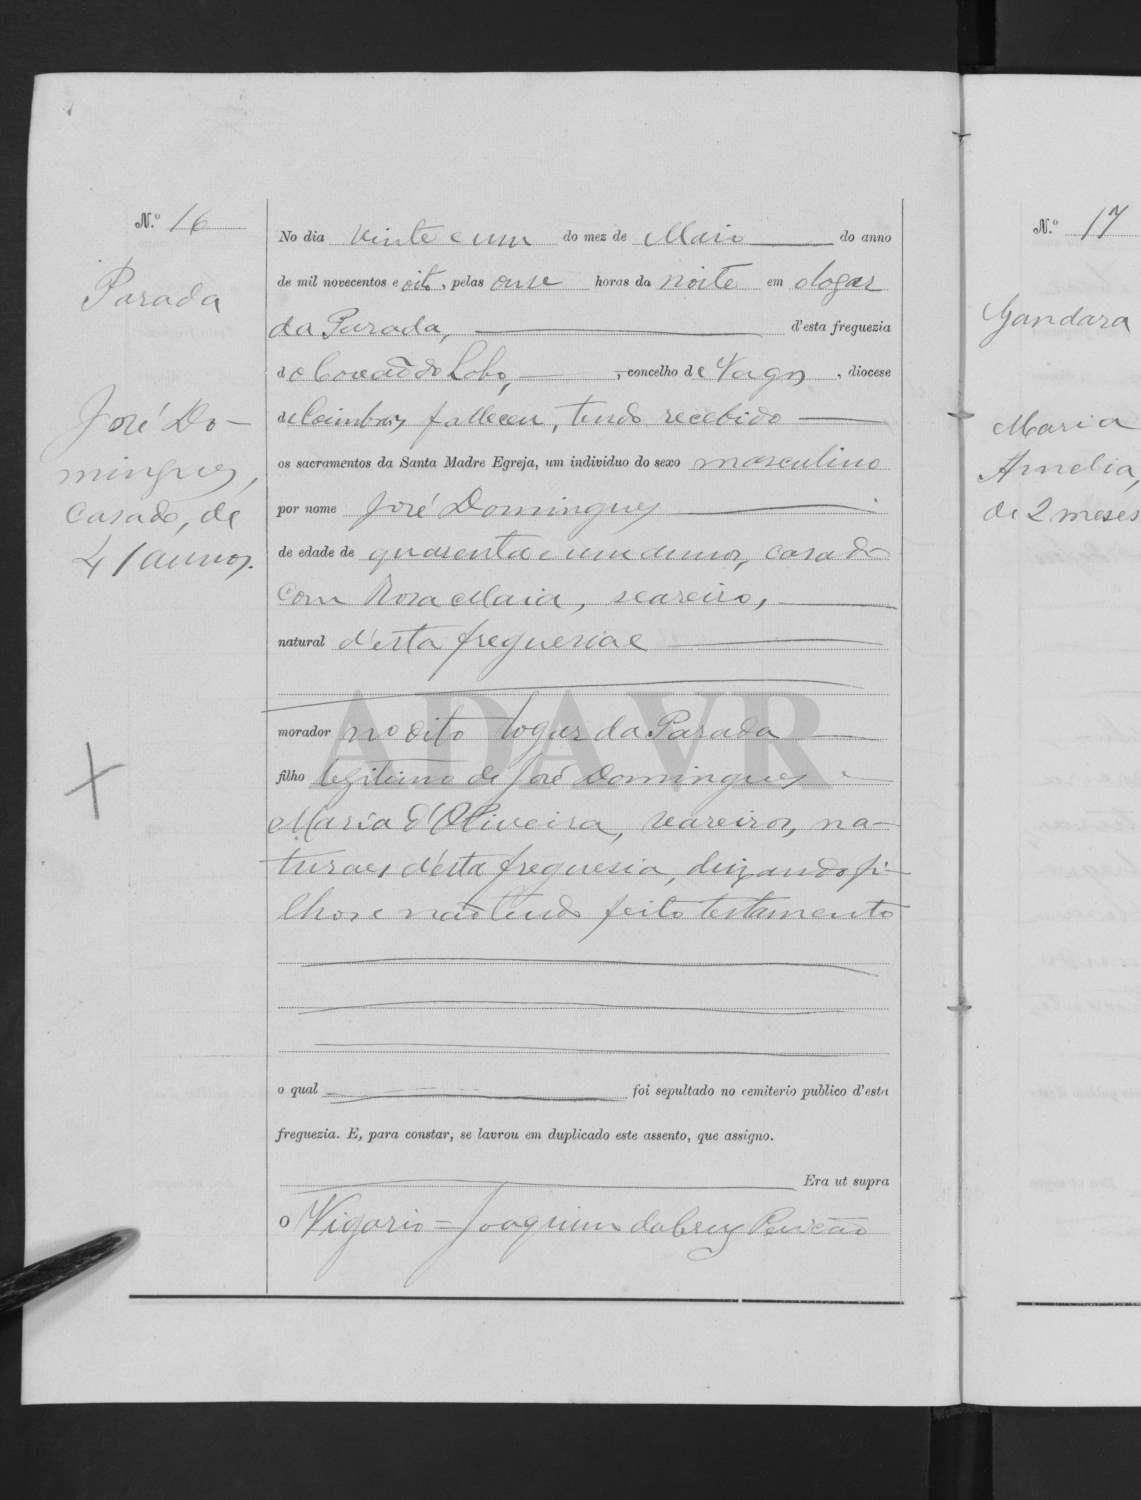 N.º 16
Parada
José Do-
mingues,
casado, de
41 annos.
No dia vinte e um do mez de Maio do anno
de mil novecentos e oito, pelas onse horas da noite em o logar
da Parada, d'esta freguezia
de Covão do Lobo, concelho de Vagos, diocese
de Coimbra, falleceu, tendo recebido
os sacramentos da Santa Madre Egreja, um individuo do sexo masculino
por nome José Domingues
de edade de quarenta e um annos, casado
com Rosa Maia, seareiro,
natural d'esta freguesia e
morador no dito logar da Parada
filho legitimo de José Domingues e
Maria d'Oliveira, seareiros, na-
turaes d'esta freguesia, deixando fi-
lhos e não tendo feito testamento
o qual foi sepultado no cemiterio publico d'esta
freguezia. E, para constar, se lavrou em duplicado este assento, que assigno.
Era ut supra
O Vigario = Joaquim da Cruz
ADAVR
N.º 17
Gandara
Maria
Amelia,
de 2 meses